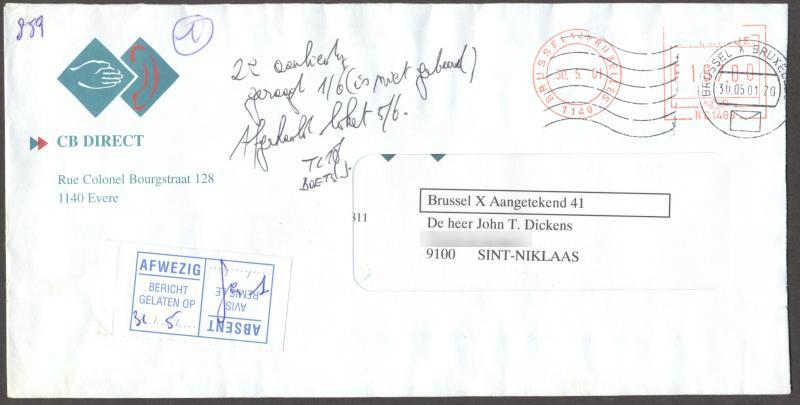 859
1
2e aanbieding
gevraagd 1/6 (is niet gebeurd)
Afgehaald loket 5/6.
CB DIRECT
Rue Colonel Bourgstraat 128
1140 Evere
BRUSSEL 1140 BRUXELLES
30.5.01
1140
BRUSSEL X BRUXELLES
30.05.01 20
811
Brussel X Aangetekend 41
De heer John T. Dickens
9100 SINT-NIKLAAS
AFWEZIG
BERICHT
GELATEN OP
31/5/
ABSENT
AVIS
REMIS LE